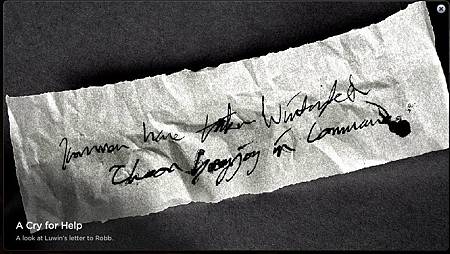 Ironmen have taken Winterfell
Theon Greyjoy in Command
A Cry for Help
A look at Luwin's letter to Robb.